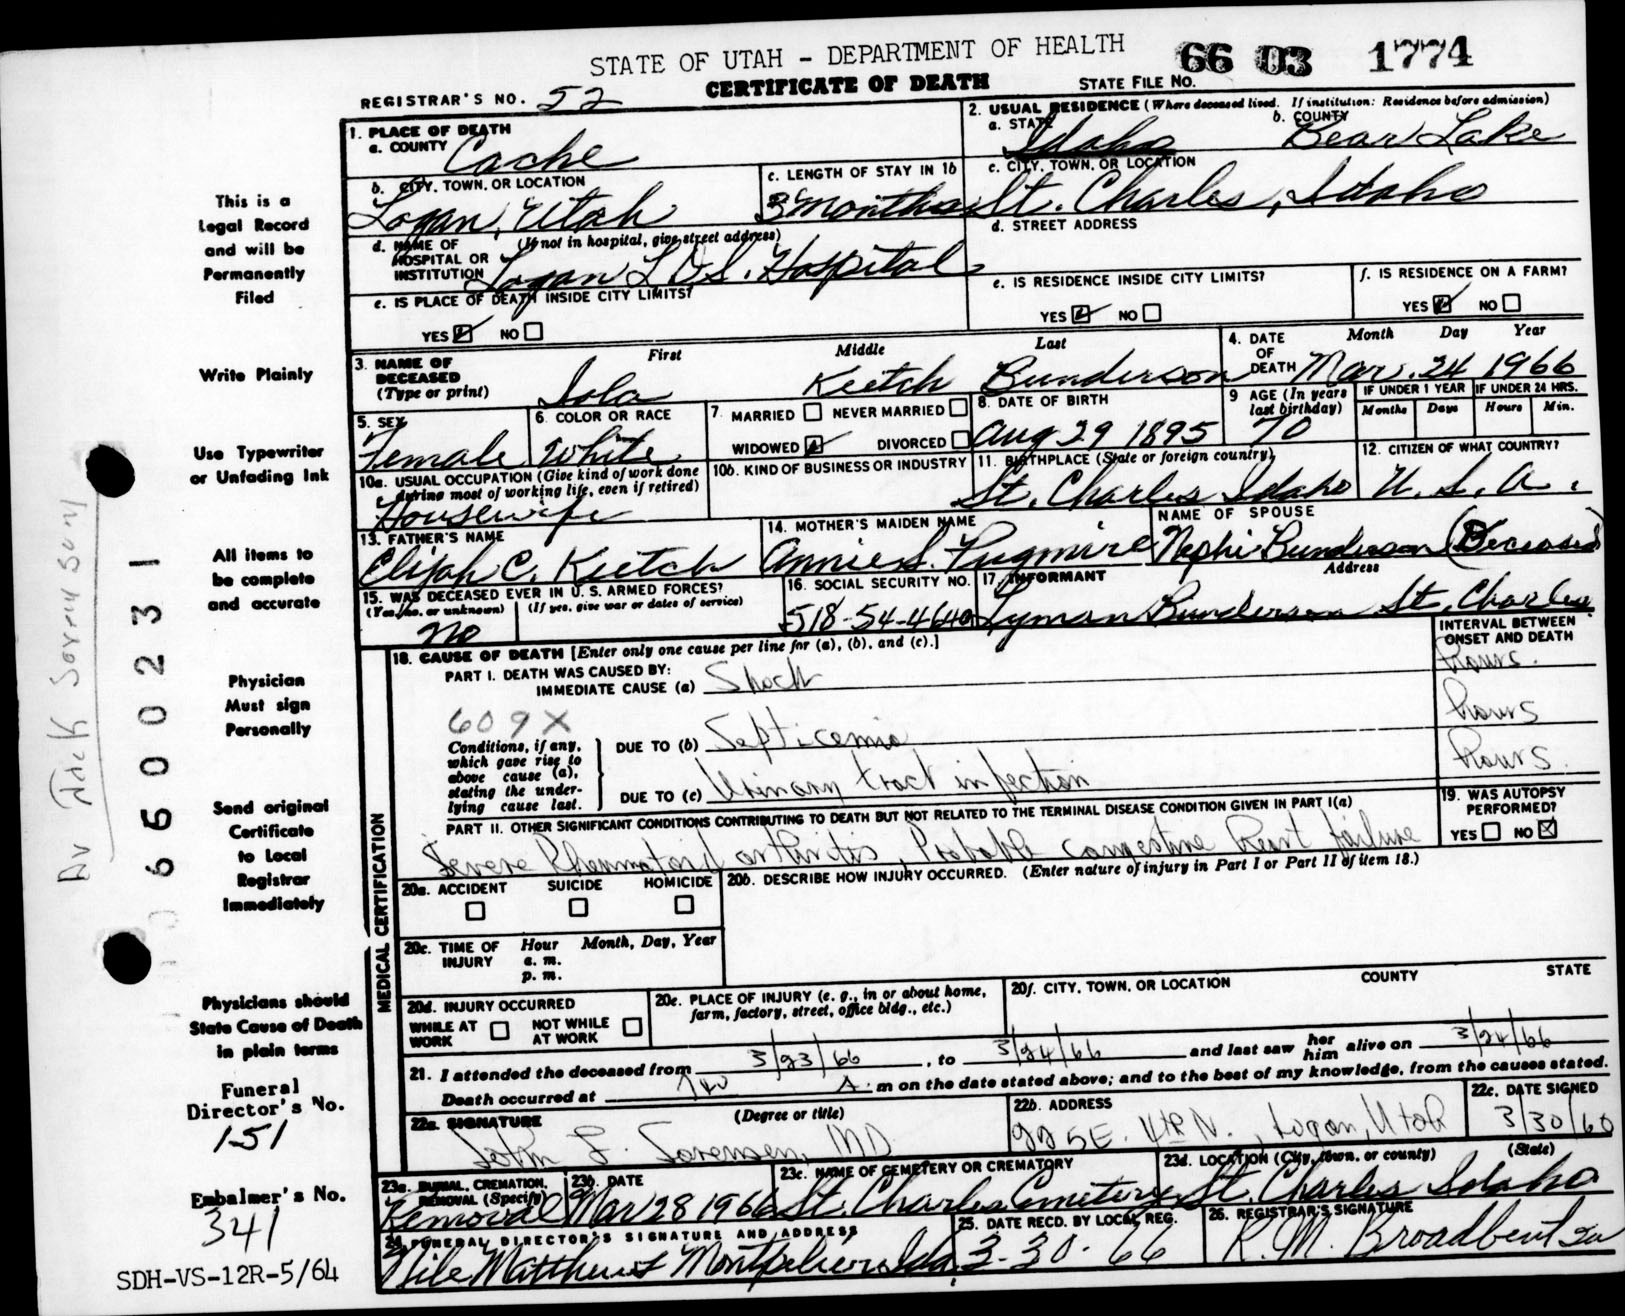 STATE OF UTAH - DEPARTMENT OF HEALTH 66 03 1774
CERTIFICATE OF DEATH STATE FILE NO.
REGISTRAR'S NO. 52
1. PLACE OF DEATH
a. COUNTY Cache
2. USUAL RESIDENCE (Where deceased lived. If institution: Residence before admission)
a. STATE Idaho b. COUNTY Bear Lake
b. CITY, TOWN, OR LOCATION Logan, Utah
c. LENGTH OF STAY IN 1b 3 months
c. CITY, TOWN, OR LOCATION St. Charles, Idaho
d. NAME OF HOSPITAL OR INSTITUTION (If not in hospital, give street address) Logan L.D.S. Hospital
d. STREET ADDRESS
e. IS PLACE OF DEATH INSIDE CITY LIMITS?
YES NO
e. IS RESIDENCE INSIDE CITY LIMITS?
YES NO
f. IS RESIDENCE ON A FARM?
YES NO
3. NAME OF DECEASED (Type or print) First Middle Last
Iola Keetch Bunderson
4. DATE OF DEATH Month Day Year
Mar. 24 1966
5. SEX Female
6. COLOR OR RACE White
7. MARRIED NEVER MARRIED
WIDOWED DIVORCED
8. DATE OF BIRTH Aug 29 1895
9 AGE (In years last birthday) 70
IF UNDER 1 YEAR Months Days
IF UNDER 24 HRS. Hours Min.
10a. USUAL OCCUPATION (Give kind of work done during most of working life, even if retired)
Housewife
10b. KIND OF BUSINESS OR INDUSTRY
11. BIRTHPLACE (State or foreign country) St. Charles Idaho
12. CITIZEN OF WHAT COUNTRY? U. S. A.
13. FATHER'S NAME Elijah C. Keetch
14. MOTHER'S MAIDEN NAME Annie S. Pugmire
NAME OF SPOUSE Nephi Bunderson (Deceased)
15. WAS DECEASED EVER IN U. S. ARMED FORCES?
(Yes, no, or unknown) (If yes, give war or dates of service)
No
16. SOCIAL SECURITY NO. 518-54-4640
17. INFORMANT Address
Lyman Bunderson St. Charles
18. CAUSE OF DEATH [Enter only one cause per line for (a), (b), and (c).]
INTERVAL BETWEEN ONSET AND DEATH
PART I. DEATH WAS CAUSED BY:
IMMEDIATE CAUSE (a) Shock hours.
609X
Conditions, if any, which gave rise to above cause (a), stating the underlying cause last.
DUE TO (b) Septicemia hours
DUE TO (c) Urinary tract infection hours.
PART II. OTHER SIGNIFICANT CONDITIONS CONTRIBUTING TO DEATH BUT NOT RELATED TO THE TERMINAL DISEASE CONDITION GIVEN IN PART I(a)
Severe Rheumatoid arthritis, Probable congestive heart failure
19. WAS AUTOPSY PERFORMED?
YES NO
20a. ACCIDENT SUICIDE HOMICIDE
20b. DESCRIBE HOW INJURY OCCURRED. (Enter nature of injury in Part I or Part II of item 18.)
20c. TIME OF INJURY Hour Month, Day, Year
a. m.
p. m.
20d. INJURY OCCURRED
WHILE AT WORK NOT WHILE AT WORK
20e. PLACE OF INJURY (e. g., in or about home, farm, factory, street, office bldg., etc.)
20f. CITY, TOWN, OR LOCATION COUNTY STATE
21. I attended the deceased from 3/23/66, to 3/24/66 and last saw her him alive on 3/24/66
Death occurred at 740 A. m on the date stated above; and to the best of my knowledge, from the causes stated.
22a. SIGNATURE (Degree or title)
John L. Sorensen, MD
22b. ADDRESS 225 E. 4th N., Logan, Utah
22c. DATE SIGNED 3/30/60
23a. BURIAL, CREMATION, REMOVAL (Specify) Removal
23b. DATE Mar 28 1966
23c. NAME OF CEMETERY OR CREMATORY St. Charles Cemetery
23d. LOCATION (City, town, or county) (State)
St. Charles Idaho
24. FUNERAL DIRECTOR'S SIGNATURE AND ADDRESS
Nile Matthews Montpelier Ida.
25. DATE RECD. BY LOCAL REG. 3-30-66
26. REGISTRAR'S SIGNATURE R. M. Broadbent
MEDICAL CERTIFICATION
This is a
Legal Record
and will be
Permanently
Filed
Write Plainly
Use Typewriter
or Unfading Ink
All items to
be complete
and accurate
Physician
Must sign
Personally
Send original
Certificate
to Local
Registrar
Immediately
Physicians should
State Cause of Death
in plain terms
Funeral
Director's No.
151
Embalmer's No.
341
SDH-VS-12R-5/64
6600231